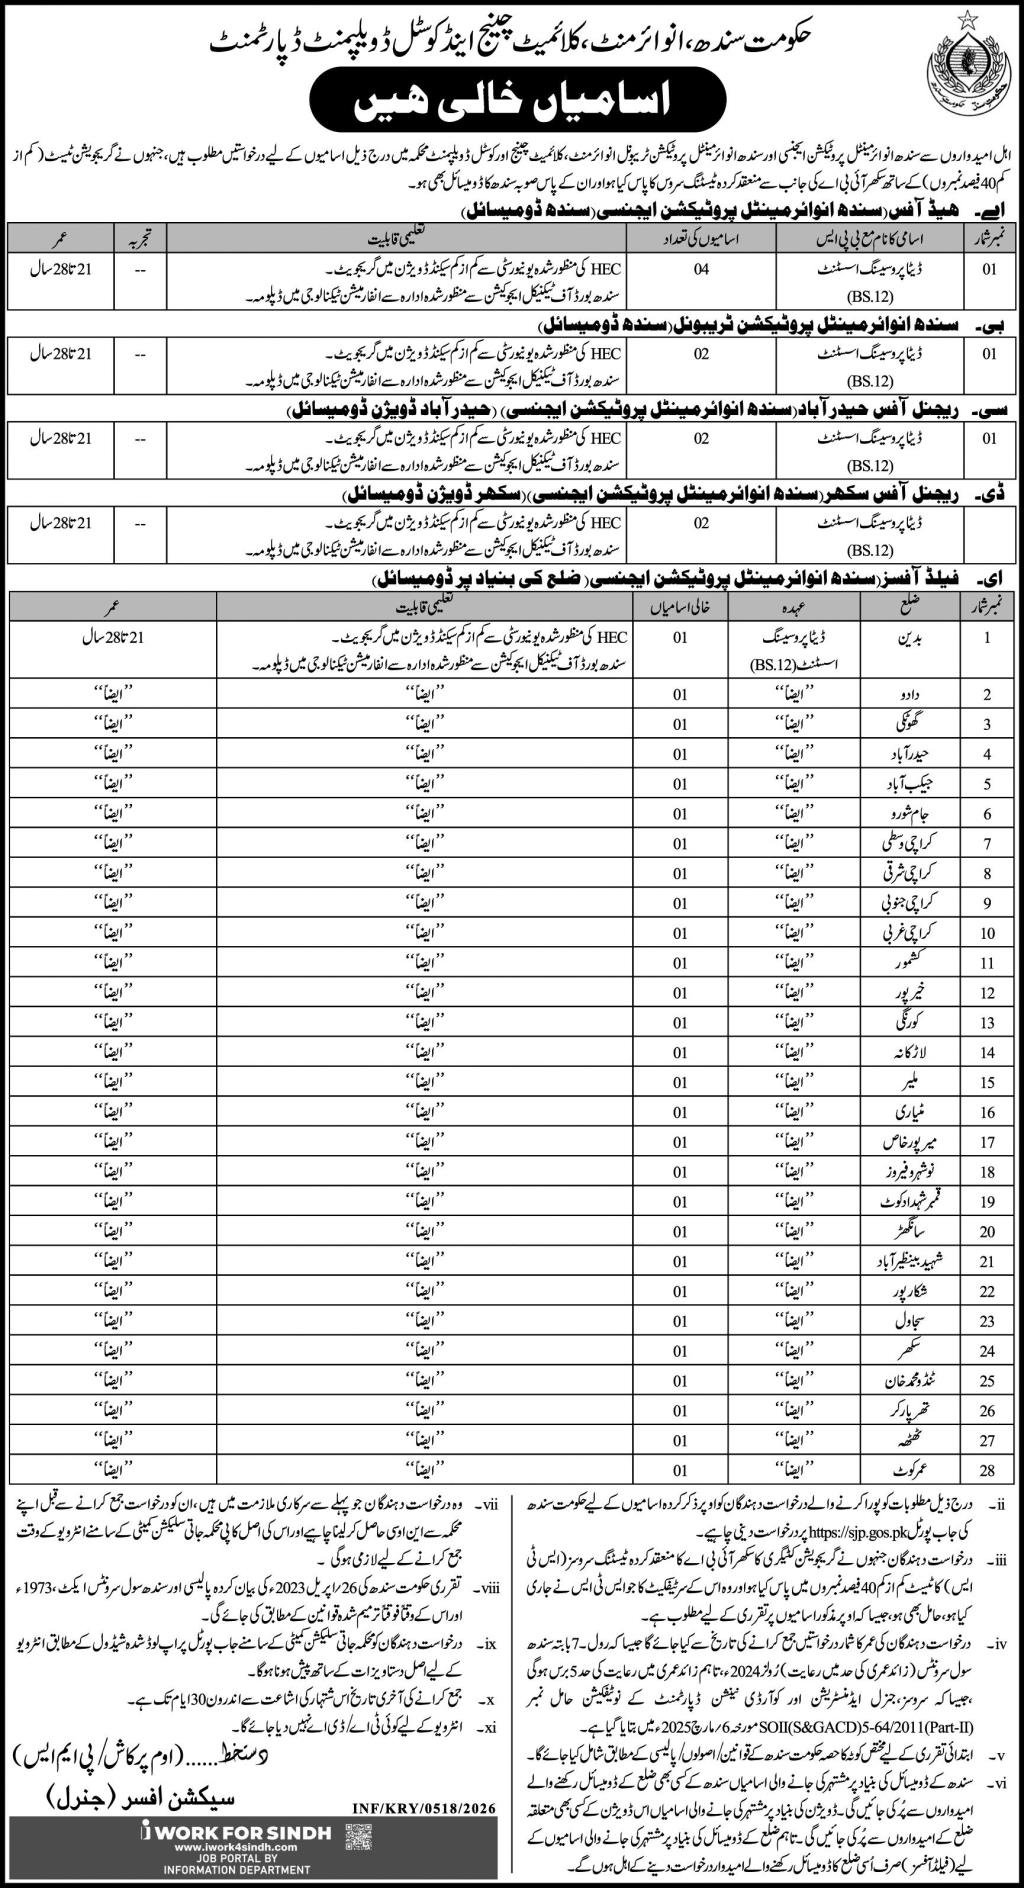 حکومت سندھ، انوائرمنٹ، کلائمیٹ چینج اینڈ کوسٹل ڈویلپمنٹ ڈپارٹمنٹ
اسامیاں خالی ہیں
اہل امیدواروں سے سندھ انوائرمینٹل پروٹیکشن ایجنسی اور سندھ انوائرمینٹل پروٹیکشن ٹریبونل انوائرمنٹ، کلائمیٹ چینج اور کوسٹل ڈویلپمنٹ محکمہ میں درج ذیل اسامیوں کے لیے درخواستیں مطلوب ہیں، جنہوں نے گریجویشن ٹیسٹ (کم از
کم 40 فیصد نمبروں) کے ساتھ سکھر آئی بی اے کی جانب سے منعقد کردہ ٹیسٹنگ سروس کا پاس کیا ہو اور ان کے پاس صوبہ سندھ کا ڈومیسائل بھی ہو۔
اے۔ ہیڈ آفس (سندھ انوائرمینٹل پروٹیکشن ایجنسی) (سندھ ڈومیسائل)
نمبر شمار اسامی کا نام مع بی پی ایس اسامیوں کی تعداد تعلیمی قابلیت تجربہ عمر
01 ڈیٹا پروسیسنگ اسسٹنٹ 04 HEC کی منظور شدہ یونیورسٹی سے کم از کم سیکنڈ ڈویژن میں گریجویٹ۔ -- 21 تا 28 سال
(BS.12) سندھ بورڈ آف ٹیکنیکل ایجوکیشن سے منظور شدہ ادارہ سے انفارمیشن ٹیکنالوجی میں ڈپلومہ۔
بی۔ سندھ انوائرمینٹل پروٹیکشن ٹریبونل (سندھ ڈومیسائل)
01 ڈیٹا پروسیسنگ اسسٹنٹ 02 HEC کی منظور شدہ یونیورسٹی سے کم از کم سیکنڈ ڈویژن میں گریجویٹ۔ -- 21 تا 28 سال
(BS.12) سندھ بورڈ آف ٹیکنیکل ایجوکیشن سے منظور شدہ ادارہ سے انفارمیشن ٹیکنالوجی میں ڈپلومہ۔
سی۔ ریجنل آفس حیدرآباد (سندھ انوائرمینٹل پروٹیکشن ایجنسی) (حیدرآباد ڈویژن ڈومیسائل)
01 ڈیٹا پروسیسنگ اسسٹنٹ 02 HEC کی منظور شدہ یونیورسٹی سے کم از کم سیکنڈ ڈویژن میں گریجویٹ۔ -- 21 تا 28 سال
(BS.12) سندھ بورڈ آف ٹیکنیکل ایجوکیشن سے منظور شدہ ادارہ سے انفارمیشن ٹیکنالوجی میں ڈپلومہ۔
ڈی۔ ریجنل آفس سکھر (سندھ انوائرمینٹل پروٹیکشن ایجنسی) (سکھر ڈویژن ڈومیسائل)
ڈیٹا پروسیسنگ اسسٹنٹ 02 HEC کی منظور شدہ یونیورسٹی سے کم از کم سیکنڈ ڈویژن میں گریجویٹ۔ -- 21 تا 28 سال
(BS.12) سندھ بورڈ آف ٹیکنیکل ایجوکیشن سے منظور شدہ ادارہ سے انفارمیشن ٹیکنالوجی میں ڈپلومہ۔
ای۔ فیلڈ آفسز (سندھ انوائرمینٹل پروٹیکشن ایجنسی) (ضلع کی بنیاد پر ڈومیسائل)
نمبر شمار ضلع عہدہ خالی اسامیاں تعلیمی قابلیت عمر
1 بدین ڈیٹا پروسیسنگ 01 HEC کی منظور شدہ یونیورسٹی سے کم از کم سیکنڈ ڈویژن میں گریجویٹ۔ 21 تا 28 سال
اسسٹنٹ (BS.12) سندھ بورڈ آف ٹیکنیکل ایجوکیشن سے منظور شدہ ادارہ سے انفارمیشن ٹیکنالوجی میں ڈپلومہ۔
2 دادو ”ایضاً“ 01 ”ایضاً“ ”ایضاً“
3 گھوٹکی ”ایضاً“ 01 ”ایضاً“ ”ایضاً“
4 حیدرآباد ”ایضاً“ 01 ”ایضاً“ ”ایضاً“
5 جیکب آباد ”ایضاً“ 01 ”ایضاً“ ”ایضاً“
6 جام شورو ”ایضاً“ 01 ”ایضاً“ ”ایضاً“
7 کراچی وسطی ”ایضاً“ 01 ”ایضاً“ ”ایضاً“
8 کراچی شرقی ”ایضاً“ 01 ”ایضاً“ ”ایضاً“
9 کراچی جنوبی ”ایضاً“ 01 ”ایضاً“ ”ایضاً“
10 کراچی غربی ”ایضاً“ 01 ”ایضاً“ ”ایضاً“
11 کشمور ”ایضاً“ 01 ”ایضاً“ ”ایضاً“
12 خیر پور ”ایضاً“ 01 ”ایضاً“ ”ایضاً“
13 کورنگی ”ایضاً“ 01 ”ایضاً“ ”ایضاً“
14 لاڑکانہ ”ایضاً“ 01 ”ایضاً“ ”ایضاً“
15 ملیر ”ایضاً“ 01 ”ایضاً“ ”ایضاً“
16 مٹیاری ”ایضاً“ 01 ”ایضاً“ ”ایضاً“
17 میرپور خاص ”ایضاً“ 01 ”ایضاً“ ”ایضاً“
18 نوشہرو فیروز ”ایضاً“ 01 ”ایضاً“ ”ایضاً“
19 قمبر شہدادکوٹ ”ایضاً“ 01 ”ایضاً“ ”ایضاً“
20 سانگھڑ ”ایضاً“ 01 ”ایضاً“ ”ایضاً“
21 شہید بینظیر آباد ”ایضاً“ 01 ”ایضاً“ ”ایضاً“
22 شکارپور ”ایضاً“ 01 ”ایضاً“ ”ایضاً“
23 سجاول ”ایضاً“ 01 ”ایضاً“ ”ایضاً“
24 سکھر ”ایضاً“ 01 ”ایضاً“ ”ایضاً“
25 ٹنڈو محمد خان ”ایضاً“ 01 ”ایضاً“ ”ایضاً“
26 تھرپارکر ”ایضاً“ 01 ”ایضاً“ ”ایضاً“
27 ٹھٹھہ ”ایضاً“ 01 ”ایضاً“ ”ایضاً“
28 عمرکوٹ ”ایضاً“ 01 ”ایضاً“ ”ایضاً“
ii۔ درج ذیل مطلوبات کو پورا کرنے والے درخواست دہندگان کو اوپر ذکر کردہ اسامیوں کے لیے حکومت سندھ
کی جاب پورٹل https://sjp.gos.pk پر درخواست دینی چاہیے۔
iii۔ درخواست دہندگان جنہوں نے گریجویشن کیٹیگری کا سکھر آئی بی اے کا منعقد کردہ ٹیسٹنگ سروسز (ایس ٹی
ایس) کا ٹیسٹ کم از کم 40 فیصد نمبروں میں پاس کیا ہو اور وہ اس کے سرٹیفکیٹ کا جو ایس ٹی ایس نے جاری
کیا ہو، حامل بھی ہو، جیسا کہ اوپر مذکور اسامیوں پر تقرری کے لیے مطلوب ہے۔
iv۔ درخواست دہندگان کی عمر کا شمار درخواستیں جمع کرانے کی تاریخ سے کیا جائے گا جیسا کہ رول۔7 بابتہ سندھ
سول سرونٹس (زائد عمری کی حد میں رعایت) رولز 2024ء، تاہم زائد عمری میں رعایت کی حد 5 برس ہوگی
، جیسا کہ سروسز، جنرل ایڈمنسٹریشن اور کوآرڈی نیشن ڈپارٹمنٹ کے نوٹیفکیشن حامل نمبر
SOII(S&GACD)5-64/2011(Part-II) مورخہ 6/مارچ 2025ء میں بتایا گیا ہے۔
v۔ ابتدائی تقرری کے لیے مختص کوٹا حصہ حکومت سندھ کے قوانین/اصولوں/پالیسی کے مطابق شامل کیا جائے گا۔
vi۔ سندھ کے ڈومیسائل کی بنیاد پر مشتہر کی جانے والی اسامیاں سندھ کے کسی بھی ضلع کے ڈومیسائل رکھنے والے
امیدواروں سے پُر کی جائیں گی۔ ڈویژن کی بنیاد پر مشتہر کی جانے والی اسامیاں اس ڈویژن کے کسی بھی متعلقہ
ضلع کے امیدواروں سے پُر کی جائیں گی۔ تاہم ضلع کے ڈومیسائل کی بنیاد پر مشتہر کی جانے والی اسامیوں کے
لیے (فیلڈ آفسز) صرف اُسی ضلع کا ڈومیسائل رکھنے والے امیدوار درخواست دینے کے اہل ہوں گے۔
vii۔ وہ درخواست دہندگان جو پہلے سے سرکاری ملازمت میں ہیں، ان کو درخواست جمع کرانے سے قبل اپنے
محکمہ سے این او سی حاصل کرلینا چاہیے اور اس کی اصل کاپی محکمہ جاتی سلیکشن کمیٹی کے سامنے انٹرویو کے وقت
جمع کرانے کے لیے لازمی ہوگی۔
viii۔ تقرری حکومت سندھ کی 26/اپریل 2023ء کی بیان کردہ پالیسی اور سندھ سول سرونٹس ایکٹ، 1973ء
اور اس کے وقتاً فوقتاً ترمیم شدہ قوانین کے مطابق کی جائے گی۔
ix۔ درخواست دہندگان کو محکمہ جاتی سلیکشن کمیٹی کے سامنے جاب پورٹل پر اپ لوڈ شدہ شیڈول کے مطابق انٹرویو
کے لیے اصل دستاویزات کے ساتھ پیش ہونا ہوگا۔
x۔ جمع کرانے کی آخری تاریخ اس اشتہار کی اشاعت سے اندرون 30 ایام تک ہے۔
xi۔ انٹرویو کے لیے کوئی ٹی اے/ڈی اے نہیں دیا جائے گا۔
دستخط...... (اوم پرکاش/پی ایم ایس)
سیکشن افسر (جنرل)
INF/KRY/0518/2026
i WORK FOR SINDH
www.iwork4sindh.com
JOB PORTAL BY
INFORMATION DEPARTMENT